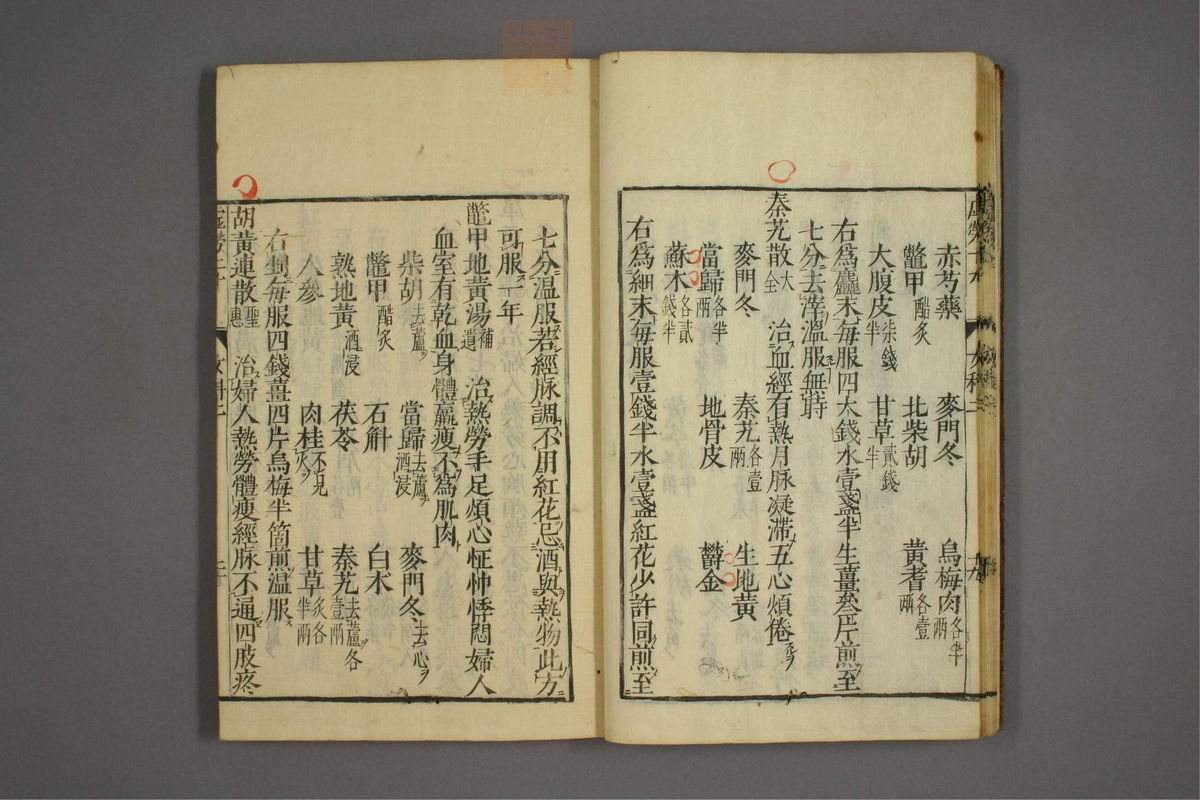 赤芍藥 麥門冬 烏梅肉各半兩
鱉甲醋炙 北柴胡 黃耆各壹兩
大腹皮柒錢半 甘草貳錢半
右爲麤末每服四大錢水壹盞半生薑叁片煎至
七分去滓溫服無時
秦艽散大全 治血經有熱月脉凝滯五心煩倦
麥門冬 秦艽各壹兩 生地黃
當歸各半兩 地骨皮 欝金
蘇木各貳錢半
右爲細末每服壹錢半水壹盞紅花少許同煎至
七分溫服若經脉調不用紅花忌酒與熱物此方
可服一年
鱉甲地黃湯補遺 治熱勞手足煩心怔忡悸悶婦人
血室有乾血身體羸瘦不爲肌肉
柴胡去蘆 當歸去蘆酒浸 麥門冬去心
鱉甲醋炙 石斛 白朮
熟地黃酒浸 茯苓 秦艽去蘆各壹兩
人參 肉桂不見火 甘草炙各半兩
右剉每服四錢薑四片烏梅半箇煎溫服
胡黃連散聖惠 治婦人熱勞體瘦經脉不通四肢疼